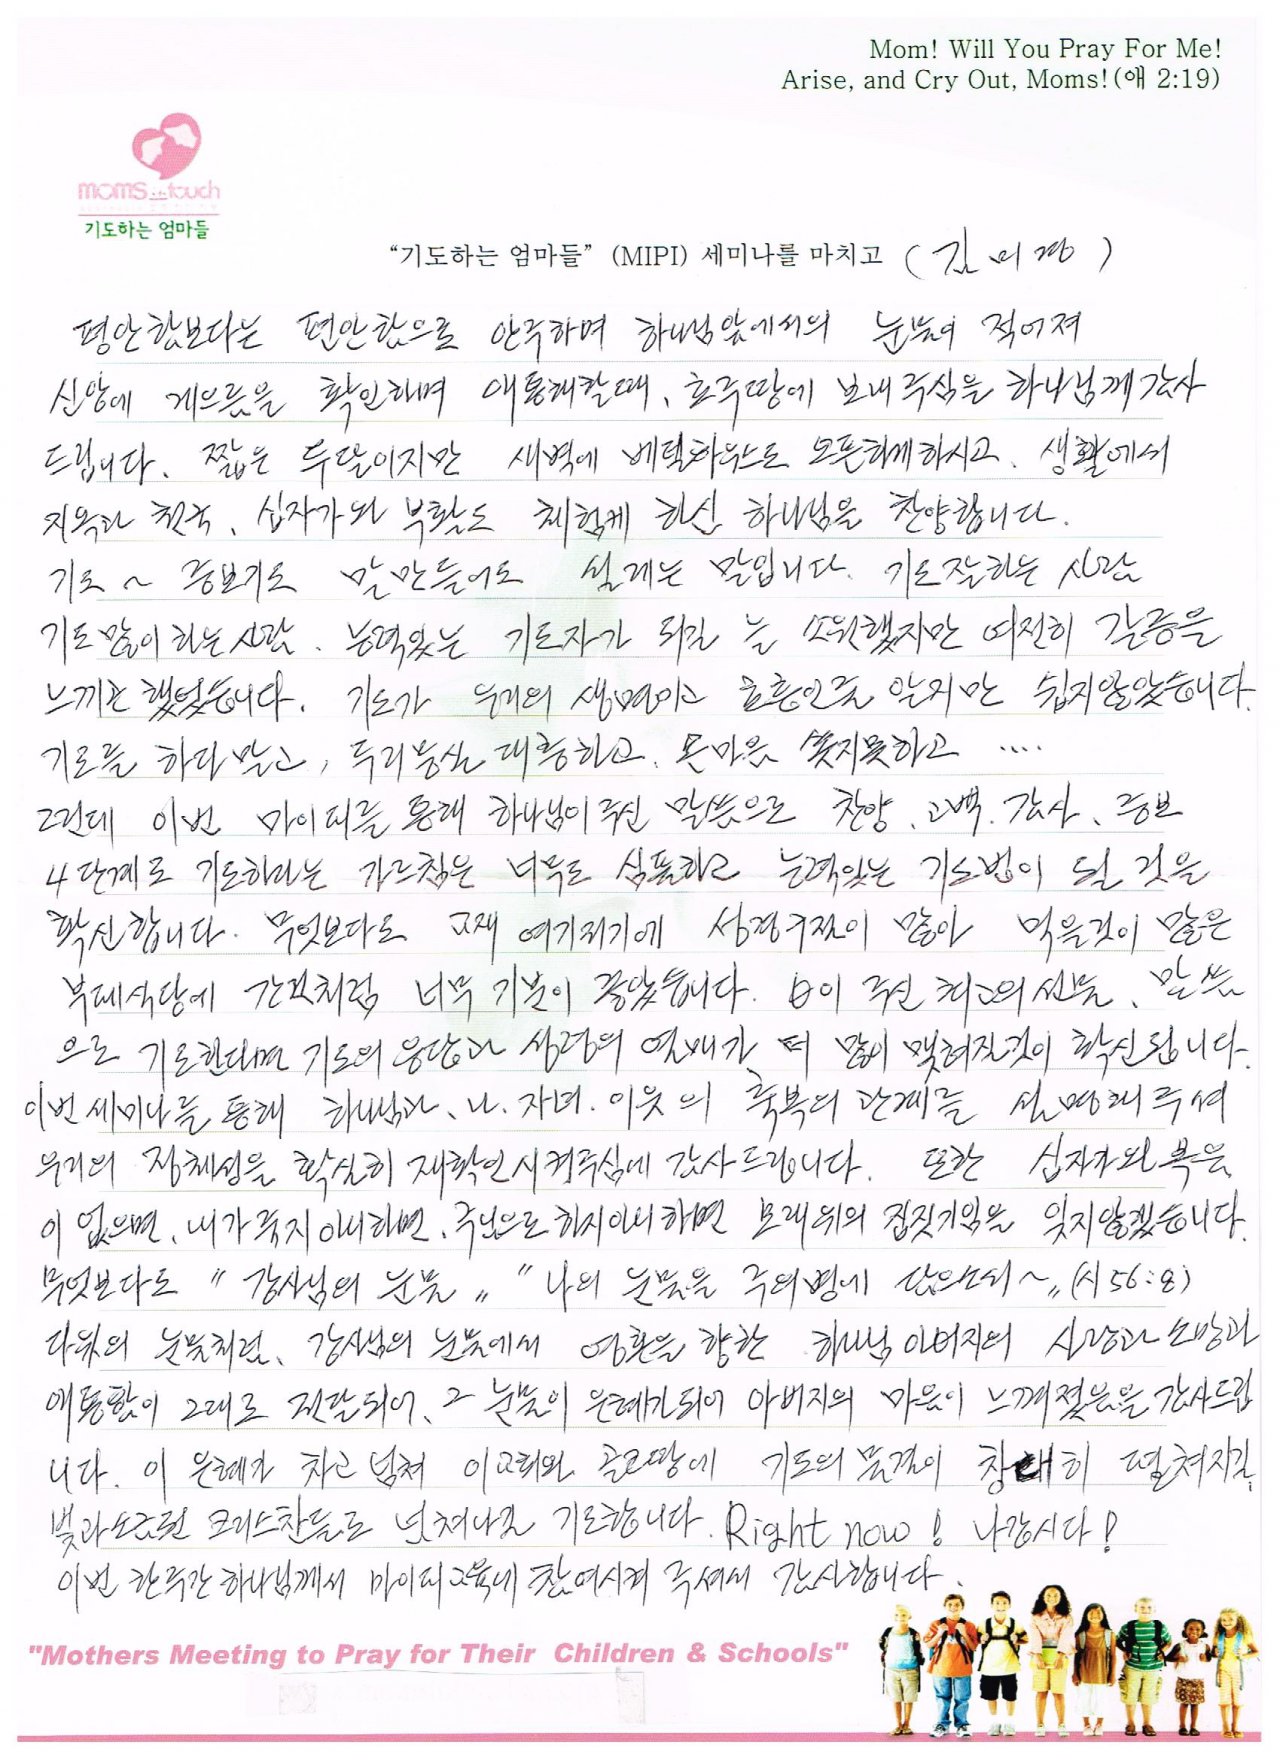 Mom! Will You Pray For Me!
Arise, and Cry Out, Moms!(애 2:19)
moms in touch
기도하는 엄마들
“기도하는 엄마들” (MIPI) 세미나를 마치고 (김미경)
평안함보다는 편안함으로 안주하며 하나님앞에서의 눈물이 적어져
신앙에 게으름을 확인하며 애통해할때, 호주땅에 보내주심을 하나님께감사
드립니다. 짧은 두달이지만 새벽에 베델하우스도 오픈하게하시고, 생활에서
지옥과 천국, 십자가와 부활도 체험케 하신 하나님을 찬양합니다.
기도 ~ 중보기도 말만들어도 설레는 말입니다. 기도잘하는 사람
기도많이하는사람. 능력있는 기도자가 되길 늘 소원했지만 여전히 갈증을
느끼곤 했었습니다. 기도가 우리의 생명이고 호흡인줄 알지만 쉽지않았습니다.
기도를 하다말고, 두리뭉실 대충하고, 온마음 쏟지못하고 ....
그런데 이번 마이피를 통해 하나님이주신 말씀으로 찬양, 고백, 감사, 중보
4단계로 기도하라는 가르침은 너무도 심플하고 능력있는 기도법이 될 것을
확신합니다. 무엇보다도 교재 여기저기에 성경구절이 많아 먹을것이 많은
부페식당에 간것처럼 너무 기분이 좋았습니다. 주신 최고의선물, 말씀
으로 기도한다면 기도의 응답과 성령의 열매가 더 많이 맺혀질것이 확신됩니다.
이번세미나를 통해 하나님과, 나, 자녀, 이웃의 축복의관계를 설명해주셔
우리의 정체성을 확실히 재확인시켜주심에 감사드립니다. 또한 십자가와복음
이 없으면, 내가 죽지아니하면, 주님으로 하지아니하면 모래위의 집짓기임을 잊지않겠습니다.
무엇보다도 " 강사님의 눈물 " " 나의 눈물을 주의병에 담으소서~" (시56:8)
다윗의 눈물처럼, 강사님의 눈물에서 영혼을 향한 하나님 아버지의 사랑과소망과
애통함이 그대로 전달되어, 그 눈물이 은혜가되어 아버지의 마음이 느껴졌음을감사드립
니다. 이 은혜가 차고 넘쳐 이교회와 골코땅에 기도의물결이 창대히 펼쳐지길,
빛과소금된 크리스찬들로 넘쳐나길 기도합니다. Right now! 나갑시다!
이번 한주간하나님께서 마이피교육에 참여시켜 주셔서 감사합니다.
"Mothers Meeting to Pray for Their Children & Schools"